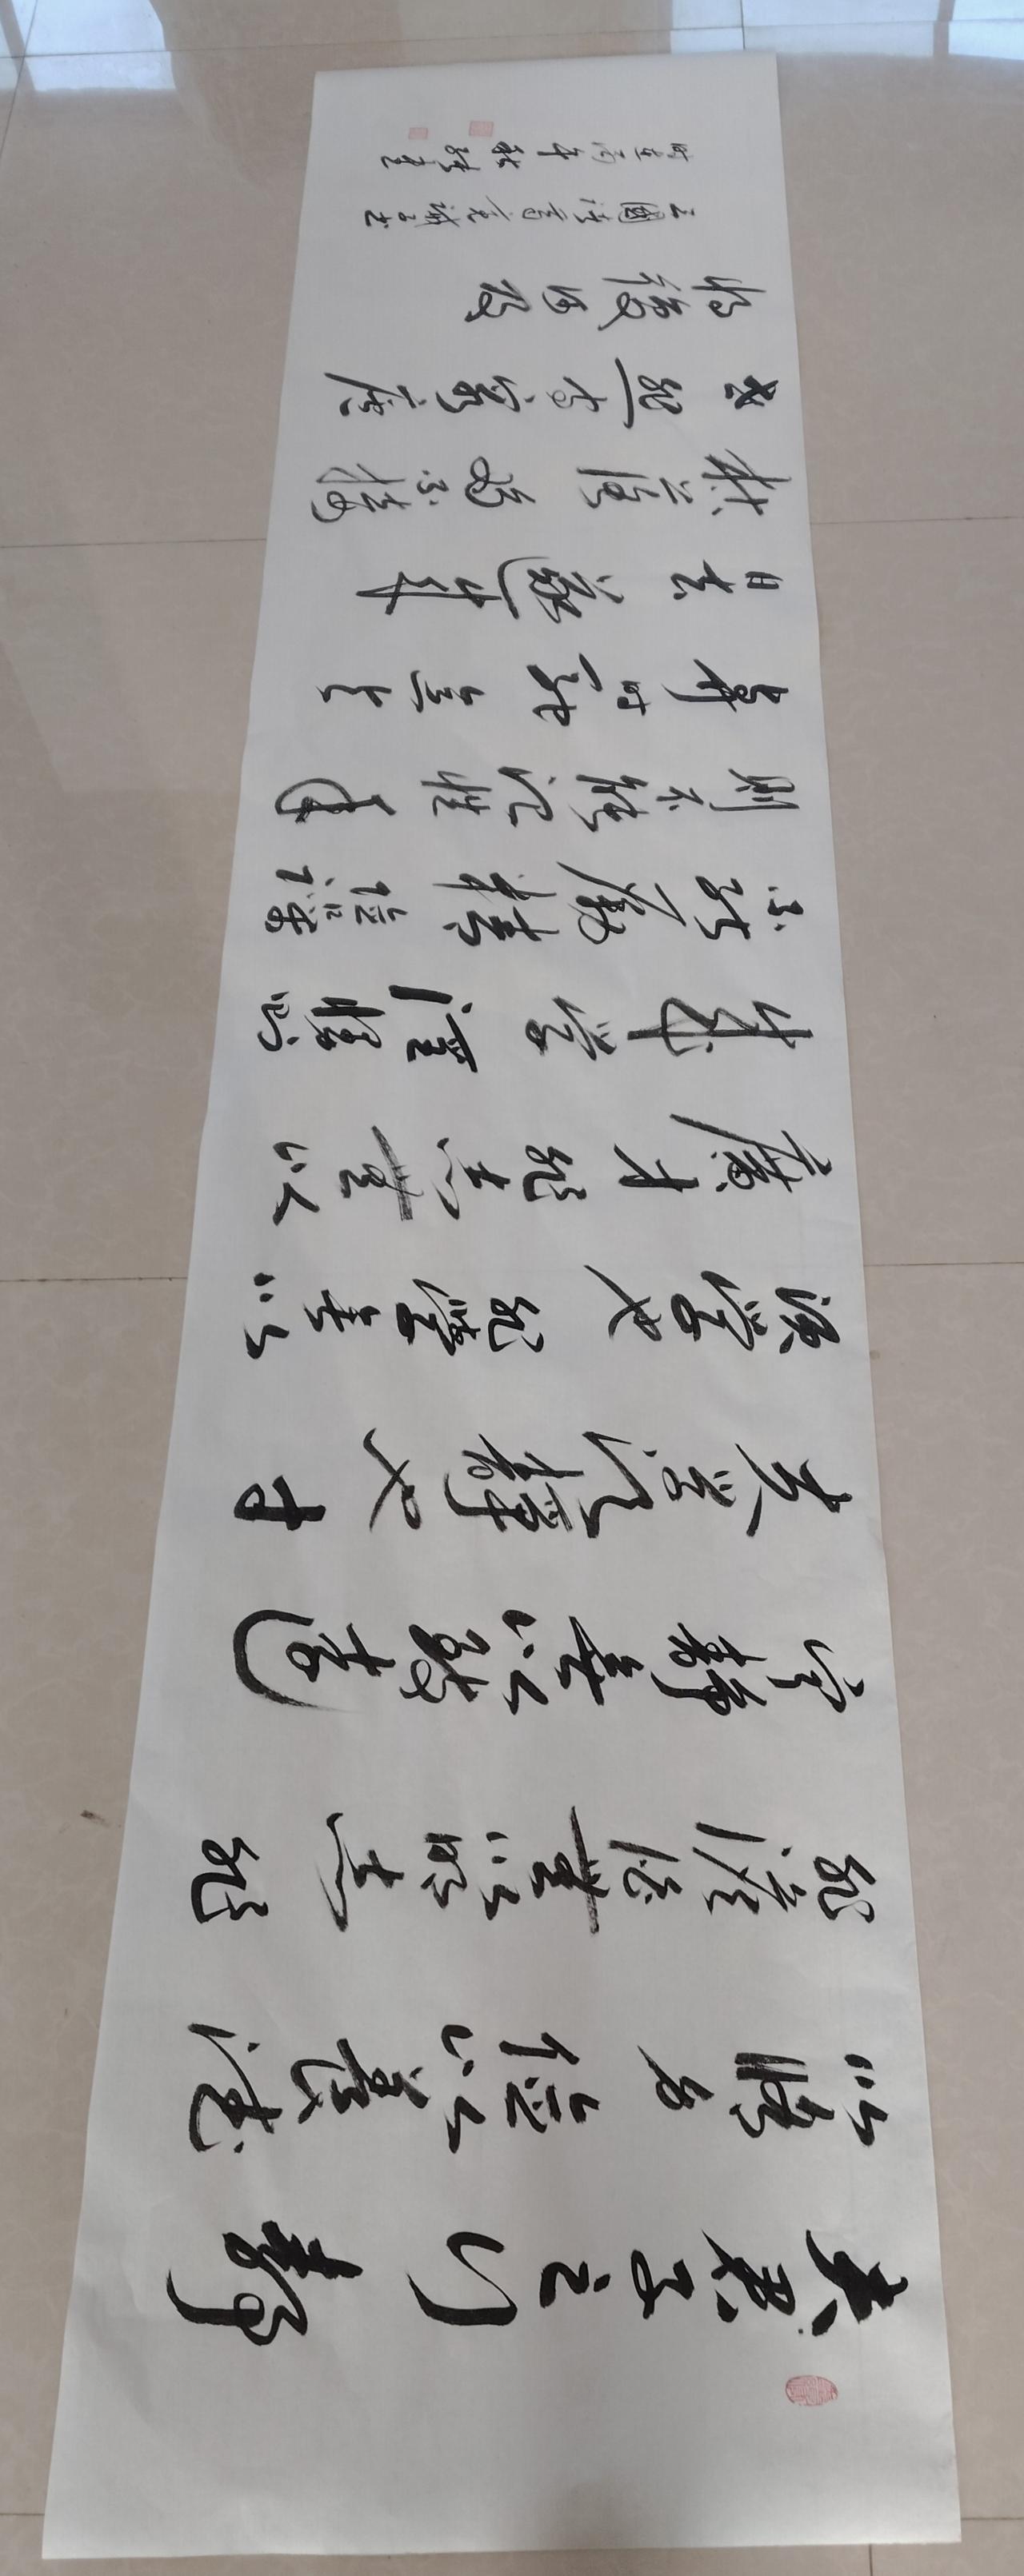 夫君子之行靜
以修身儉以養德
非澹泊無以明志非
寧靜無以致遠
夫學須靜也才
須學也非學無以
廣才非志無以
成學淫慢則
不能勵精險躁
則不能治性年
與時馳意與
日去遂成
枯落多不接
世悲守窮廬
將復何及
三國諸葛亮誡子書